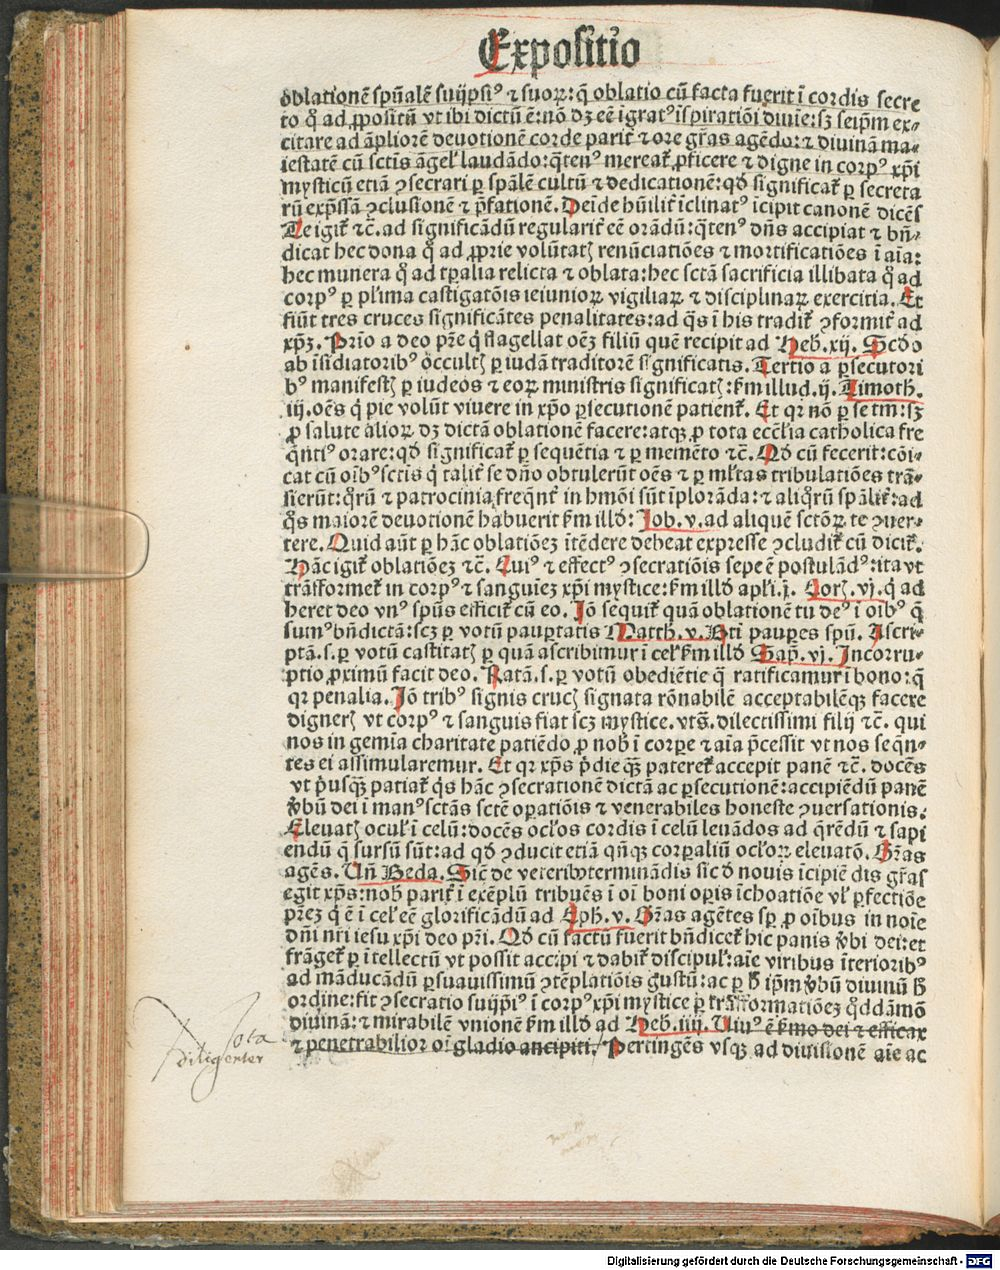 Expositio
oblationē spūalē suijpsiꝰ ⁊ suoꝝ: q̄ oblatio cū facta fuerit ī cordis secre
to qͦ ad ꝓpositū vt ibi dictū ē: nō dꝫ eē īgratꝰ īspiratiōi diuīe: sꝫ seip̄m ex-
citare ad āpliorē deuotionē corde parit̄ ⁊ ore gr̄as agēdo: ⁊ diuinā ma-
iestatē cū sctīs āgel̄ laudādo: q̄tenꝰ mereat̄ ꝓficere ⁊ digne in corpꝰ xp̄i
mysticū etiā ꝯsecrari ꝑ spālē cultū ⁊ dedicationē: qd̄ significat̄ ꝑ secreta
rū exp̄ssā ꝯclusionē ⁊ p̄fationē. Deīde hūilit̄ īclinatꝰ īcipit canonē dicēs
Te igit̄ ⁊c̄. ad significādū regularit̄ eē orādū: q̄tenꝰ dn̄s accipiat ⁊ bn̄-
dicat hec dona qͦ ad ꝓprie volūtatꝭ renūciatiōes ⁊ mortificatiōes ī aīa:
hec munera qͦ ad tꝑalia relicta ⁊ oblata: hec sctā sacrificia illibata qͦ ad
corpꝰ ꝑ pl'ima castigatōis ieiunioꝝ vigiliaꝝ ⁊ disciplinaꝝ exercitia. Et
fiūt tres cruces significātes penalitates: ad q̄s ī his tradit̄ ꝯformit̄ ad
xp̄ꝫ. Prīo a deo pr̄e qͥ flagellat oēꝫ filiū quē recipit ad Heb̄. xij. Scd̄o
ab īsidiatoribꝰ occultꝭ ꝑ iudā traditorē significatis. Tertio a ꝑsecutori
bꝰ manifestꝭ ꝑ iudeos ⁊ eoꝝ ministris significatꝭ: ẜm illud. ij. Timoth.
iij. oēs qͥ pie volūt viuere in xp̄o ꝑsecutionē patient̄. Et qꝛ nō ꝑ se tm̄: sꝫ
ꝓ salute alioꝝ dꝫ dictā oblationē facere: atqꝫ ꝑ tota eccl'ia catholica fre
q̄ntiꝰ orare: qd̄ significat̄ ꝑ sequētia ⁊ ꝑ memēto ⁊c̄. Qd̄ cū fecerit: cōi-
cat cū oībꝰ sctīs qͥ talit̄ se dn̄o obtulerūt oēs ⁊ ꝑ ml'tas tribulatiōes trā-
sierūt: qͦrū ⁊ patrocinia freq̄nt̄ in hmōi sūt īplorāda: ⁊ aliqͦrū spālit̄: ad
qͦs maiorē deuotionē habuerit ẜm illd̄: Job. v. ad aliquē sctōꝝ te ꝯuer-
tere. Quid aūt ꝑ hāc oblatiōeꝫ ītēdere debeat expresse ꝯcludit̄ cū dicit̄.
Hāc igit̄ oblatiōeꝫ ⁊c̄. Cuiꝰ ⁊ effectꝰ ꝯsecratiōis sepe ē postulādꝰ: ita vt
trāsformet̄ in corpꝰ ⁊ sanguīeꝫ xp̄i mystice: ẜm illd̄ apl'i. j. Corꝭ. vj. qͥ ad
heret deo vnꝰ spūs efficit̄ cū eo. Jō sequit̄ quā oblationē tu deꝰ ī oībꝰ q̄
sumꝰ bn̄dictā: scꝫ ꝑ votū pauꝑtatis Matth. v. Bt̄i pauꝑes spū. Ascri-
ptā. s. ꝑ votū castitatꝭ ꝑ quā ascribimur ī cel' ẜm illd̄ Sap̄. vj. Incorru-
ptio ꝓximū facit deo. Ratā. s. ꝑ votū obediētie q̄ ratificamur ī bono: q̄
qꝛ penalia. Jō tribꝰ signis crucꝭ signata rōnabilē acceptabilēqꝫ facere
dignerꝭ vt corpꝰ ⁊ sanguis fiat scꝫ mystice. vts̄. dilectissimi filij ⁊c̄. qui
nos in gemīa charitate patiēdo ꝓ nob̄ ī corꝑe ⁊ aīa p̄cessit vt nos seq̄n-
tes ei assimularemur. Et qꝛ xp̄s p̄die qͣꝫ pateret̄ accepit panē ⁊c̄. docēs
vt pͥusqͣꝫ patiat̄ qͥs hāc ꝯsecrationē dictā ac ꝑsecutionē: accipiēdū panē
ꝟbū dei ī manꝰ sctās sctē oꝑatiōis ⁊ venerabiles honeste ꝯuersationis.
Eleuatꝭ ocul' ī celū: docēs ocl'os cordis ī celū leuādos ad q̄rēdū ⁊ sapi
endū q̄ sursū sūt: ad qd̄ ꝯducit etiā qn̄qꝫ corꝑaliū ocl'oꝝ eleuatō. Gr̄as
agēs. Un̄ Beda. Sic̄ de veteri bterminādis sic d̄ nouis īcipiē dis gr̄as
egit xp̄s: nob̄ parit̄ ī exēplū tribuēs ī oī boni oꝑis īchoatiōe vl' ꝑfectiōe
pr̄eꝫ qͥ ē ī cel' eē glorificādū ad Eph̄. v. Gr̄as agētes sꝑ ꝓ oībus in noīe
dn̄i nr̄i iesu xp̄i deo pr̄i. Qd̄ cū factū fuerit bn̄dicet̄ hic panis ꝟbi dei: et
frāget̄ ꝑ ītellectū vt possit accipi ⁊ dabit̄ discipul': aīe viribus īterioribꝰ
ad māducādū ꝑsuauissimū ꝯtēplatiōis gustū: ac ꝑ ħ ip̄m ꝟbū diuinū ħ
ordine: fit ꝯsecratio suijpīꝰ ī corpꝰ xp̄i mystice ꝑ trāsformatiōeꝫ qͦddāmō
diuinā: ⁊ mirabilē vnionē ẜm illd̄ ad Heb̄. iiij. Uiuꝰ ē ẜmo dei ⁊ efficax
⁊ penetrabilior oī gladio ancipiti. Pertingēs vsqꝫ ad diuisionē aīe ac
Nota
diligenter
Digitalisierung gefördert durch die Deutsche Forschungsgemeinschaft - DFG